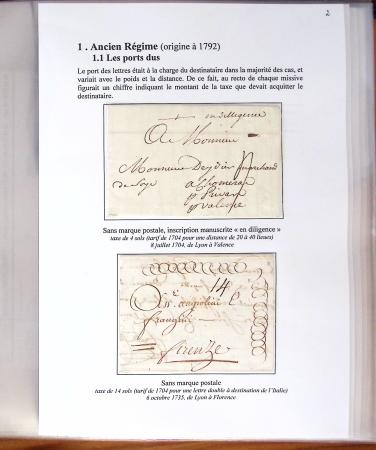 2
1 . Ancien Régime (origine à 1792)
1.1 Les ports dus
Le port des lettres était à la charge du destinataire dans la majorité des cas, et
variait avec le poids et la distance. De ce fait, au recto de chaque missive
figurait un chiffre indiquant le montant de la taxe que devait acquitter le
destinataire.
en diligence
A Monsieur
Monsieur marchand
de Soye
a Chomerac
pr Privas
pr Valence
Sans marque postale, inscription manuscrite « en diligence »
taxe de 4 sols (tarif de 1704 pour une distance de 20 à 40 lieues)
8 juillet 1704, de Lyon à Valence
14
firenze
Sans marque postale
taxe de 14 sols (tarif de 1704 pour une lettre double à destination de l'Italie)
6 octobre 1735, de Lyon à Florence